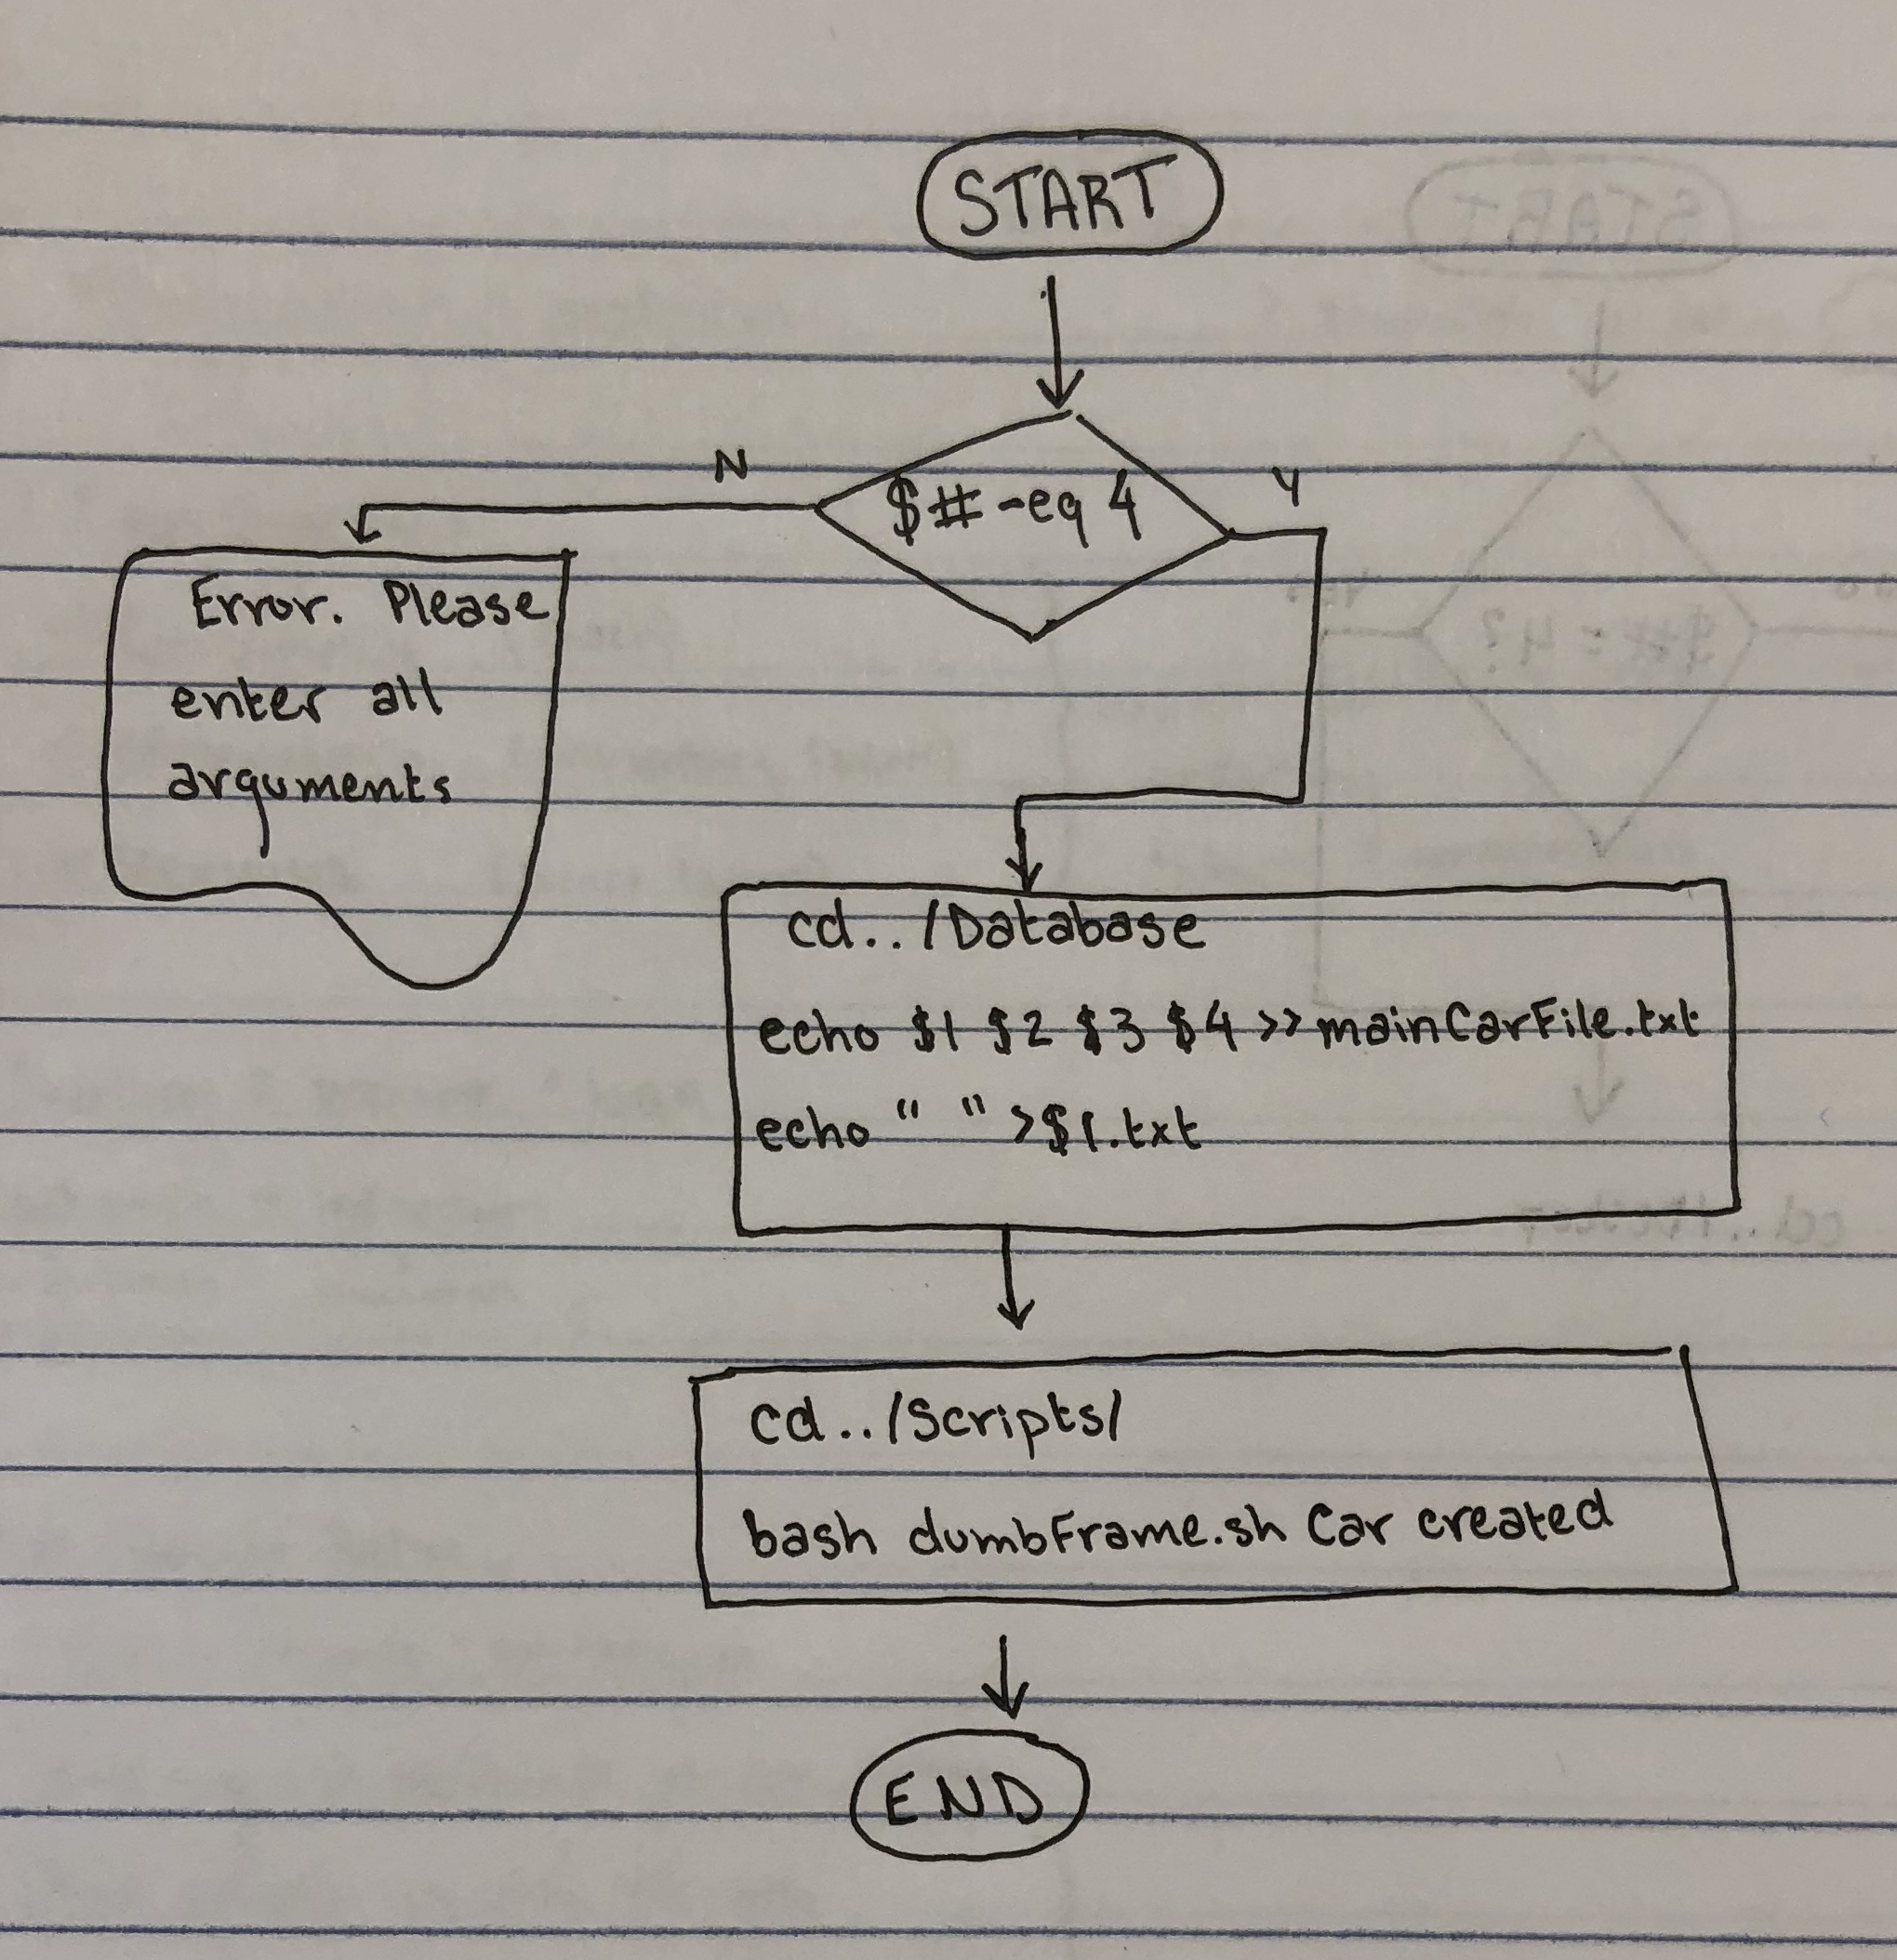 START
N
Y
$# -eq 4
Error. Please
enter all
arguments
cd../Database
echo $1 $2 $3 $4 >> mainCarFile.txt
echo " " >$1.txt
cd../Scripts/
bash dumbFrame.sh Car created
END
START
$# = 4?
yes